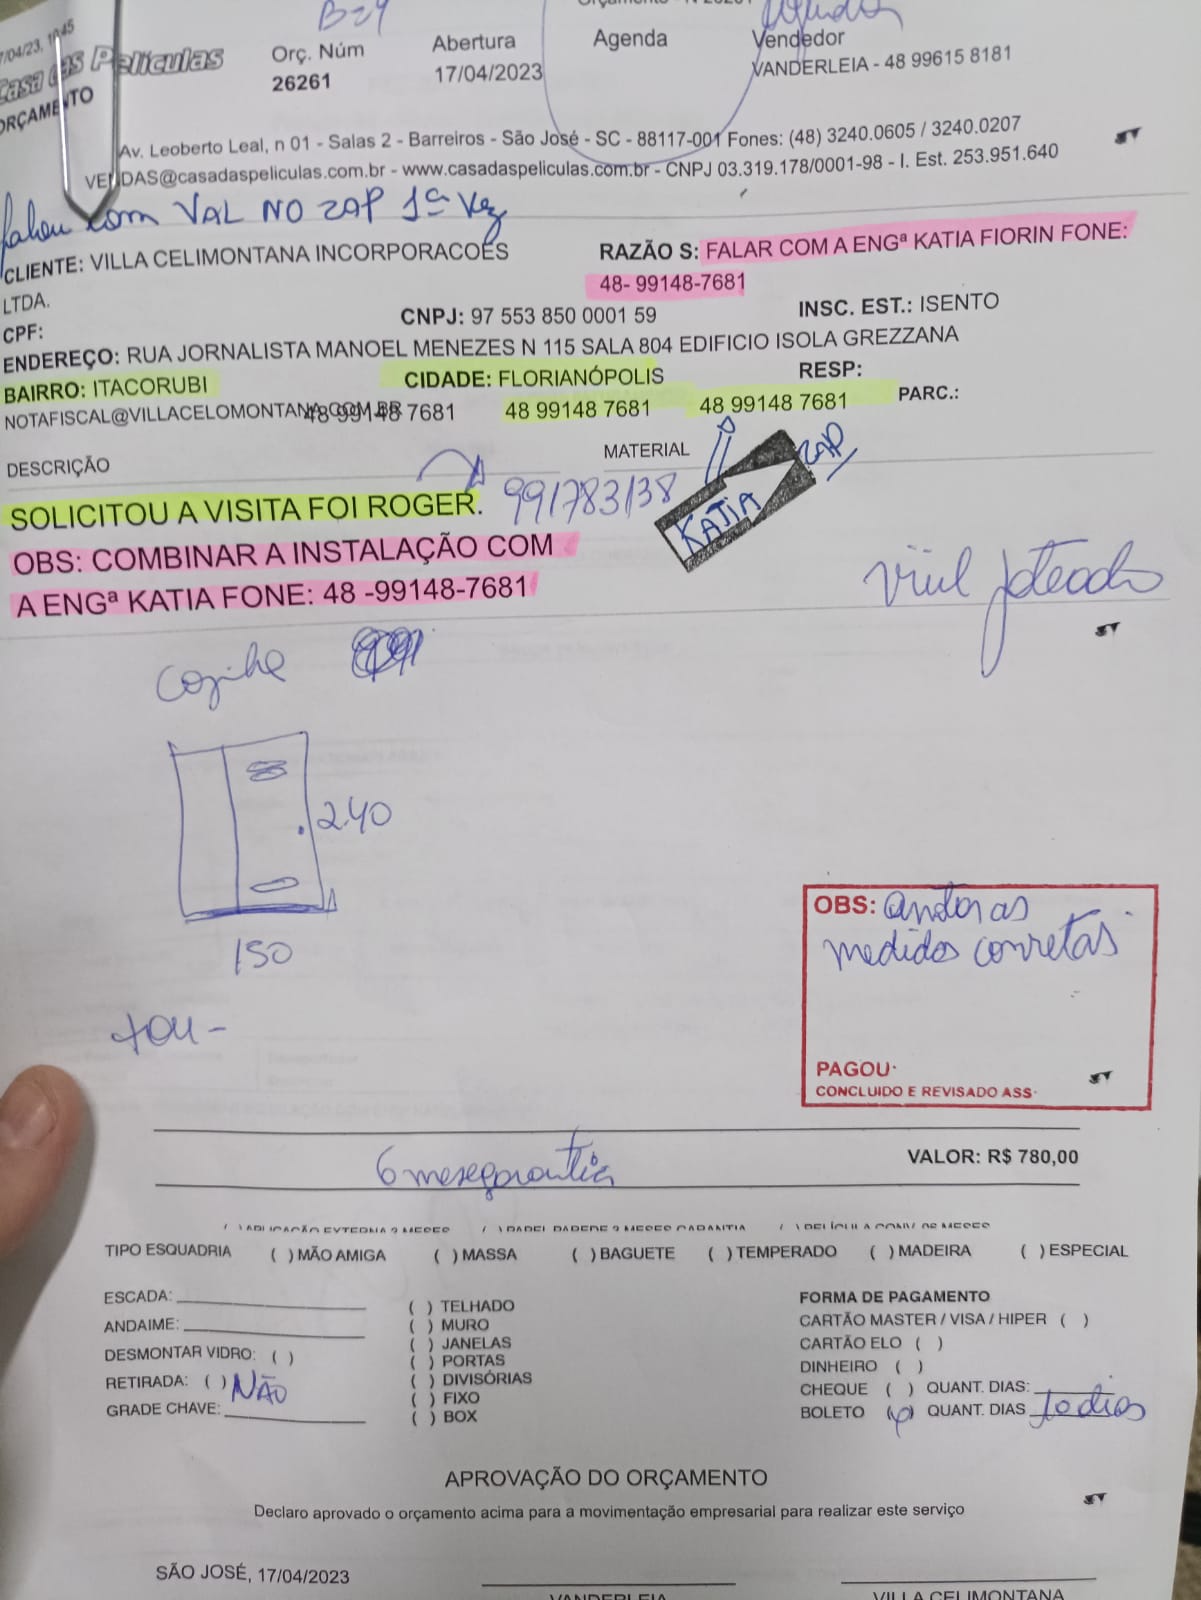 Casa das Películas
ORÇAMENTO
Orç. Núm
26261
Abertura
17/04/2023
Agenda
Vendedor
VANDERLEIA - 48 99615 8181
Av. Leoberto Leal, n 01 - Salas 2 - Barreiros - São José - SC - 88117-001 Fones: (48) 3240.0605 / 3240.0207
VENDAS@casadaspeliculas.com.br - www.casadaspeliculas.com.br - CNPJ 03.319.178/0001-98 - I. Est. 253.951.640
falou com VAL NO ZAP 1ª Vez
CLIENTE: VILLA CELIMONTANA INCORPORACOES
LTDA.
RAZÃO S: FALAR COM A ENGª KATIA FIORIN FONE:
48- 99148-7681
CPF:
CNPJ: 97 553 850 0001 59
INSC. EST.: ISENTO
ENDEREÇO: RUA JORNALISTA MANOEL MENEZES N 115 SALA 804 EDIFICIO ISOLA GREZZANA
BAIRRO: ITACORUBI
CIDADE: FLORIANÓPOLIS
RESP:
NOTAFISCAL@VILLACELOMONTANA.COM.BR
48 99148 7681
48 99148 7681
48 99148 7681
PARC.:
DESCRIÇÃO
MATERIAL
SOLICITOU A VISITA FOI ROGER.
991783138
KATIA
ZAP
OBS: COMBINAR A INSTALAÇÃO COM
A ENGª KATIA FONE: 48 -99148-7681
jateado
2.40
150
OBS: anotar as
medidas corretas
PAGOU:
CONCLUIDO E REVISADO ASS:
VALOR: R$ 780,00
6 meses garantia
( ) APLICAÇÃO EXTERNA 3 MESES ( ) PAPEL PAREDE 3 MESES GARANTIA ( ) PELÍCULA CONV. 06 MESES
TIPO ESQUADRIA ( ) MÃO AMIGA ( ) MASSA ( ) BAGUETE ( ) TEMPERADO ( ) MADEIRA ( ) ESPECIAL
ESCADA:
ANDAIME:
DESMONTAR VIDRO: ( )
RETIRADA: ( ) NÃO
GRADE CHAVE:
( ) TELHADO
( ) MURO
( ) JANELAS
( ) PORTAS
( ) DIVISÓRIAS
( ) FIXO
( ) BOX
FORMA DE PAGAMENTO
CARTÃO MASTER / VISA / HIPER ( )
CARTÃO ELO ( )
DINHEIRO ( )
CHEQUE ( ) QUANT. DIAS:
BOLETO ( ) QUANT. DIAS 10 dias
APROVAÇÃO DO ORÇAMENTO
Declaro aprovado o orçamento acima para a movimentação empresarial para realizar este serviço
SÃO JOSÉ, 17/04/2023
VANDERLEIA
VILLA CELIMONTANA